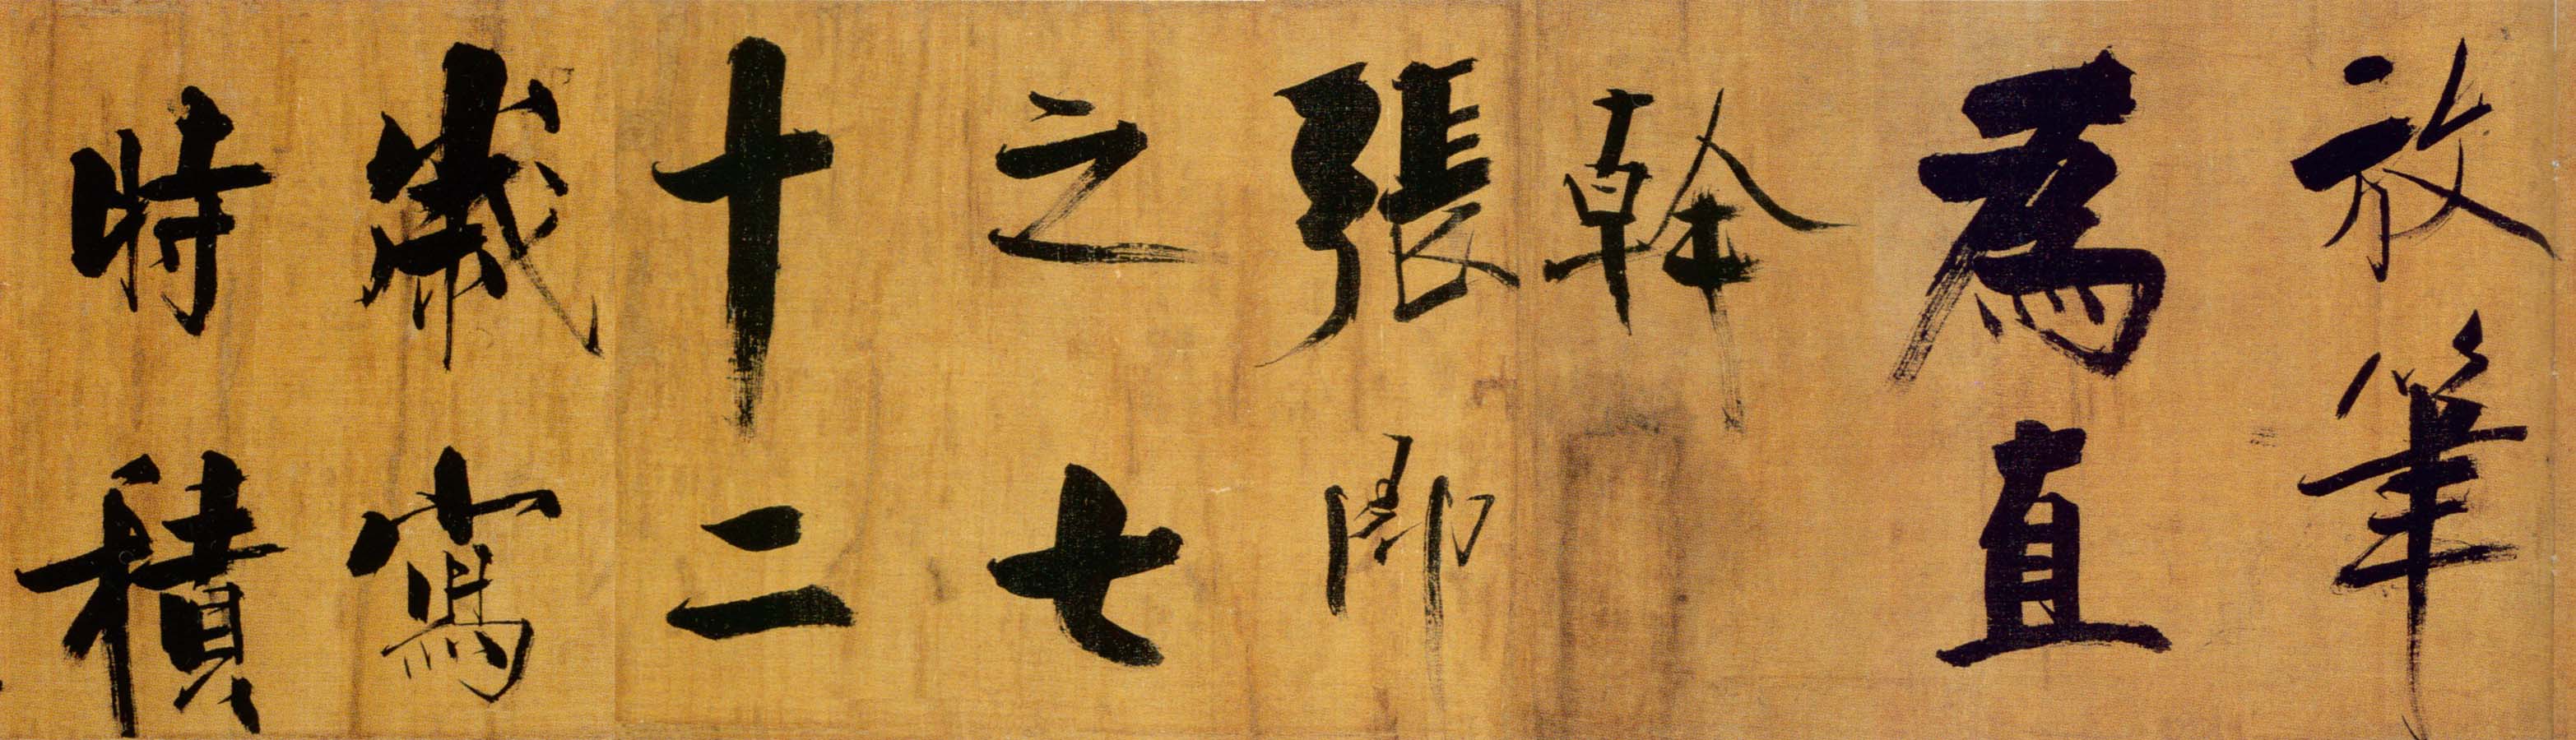 放筆
為直
幹
張即
之七
十二
歲寫
時積